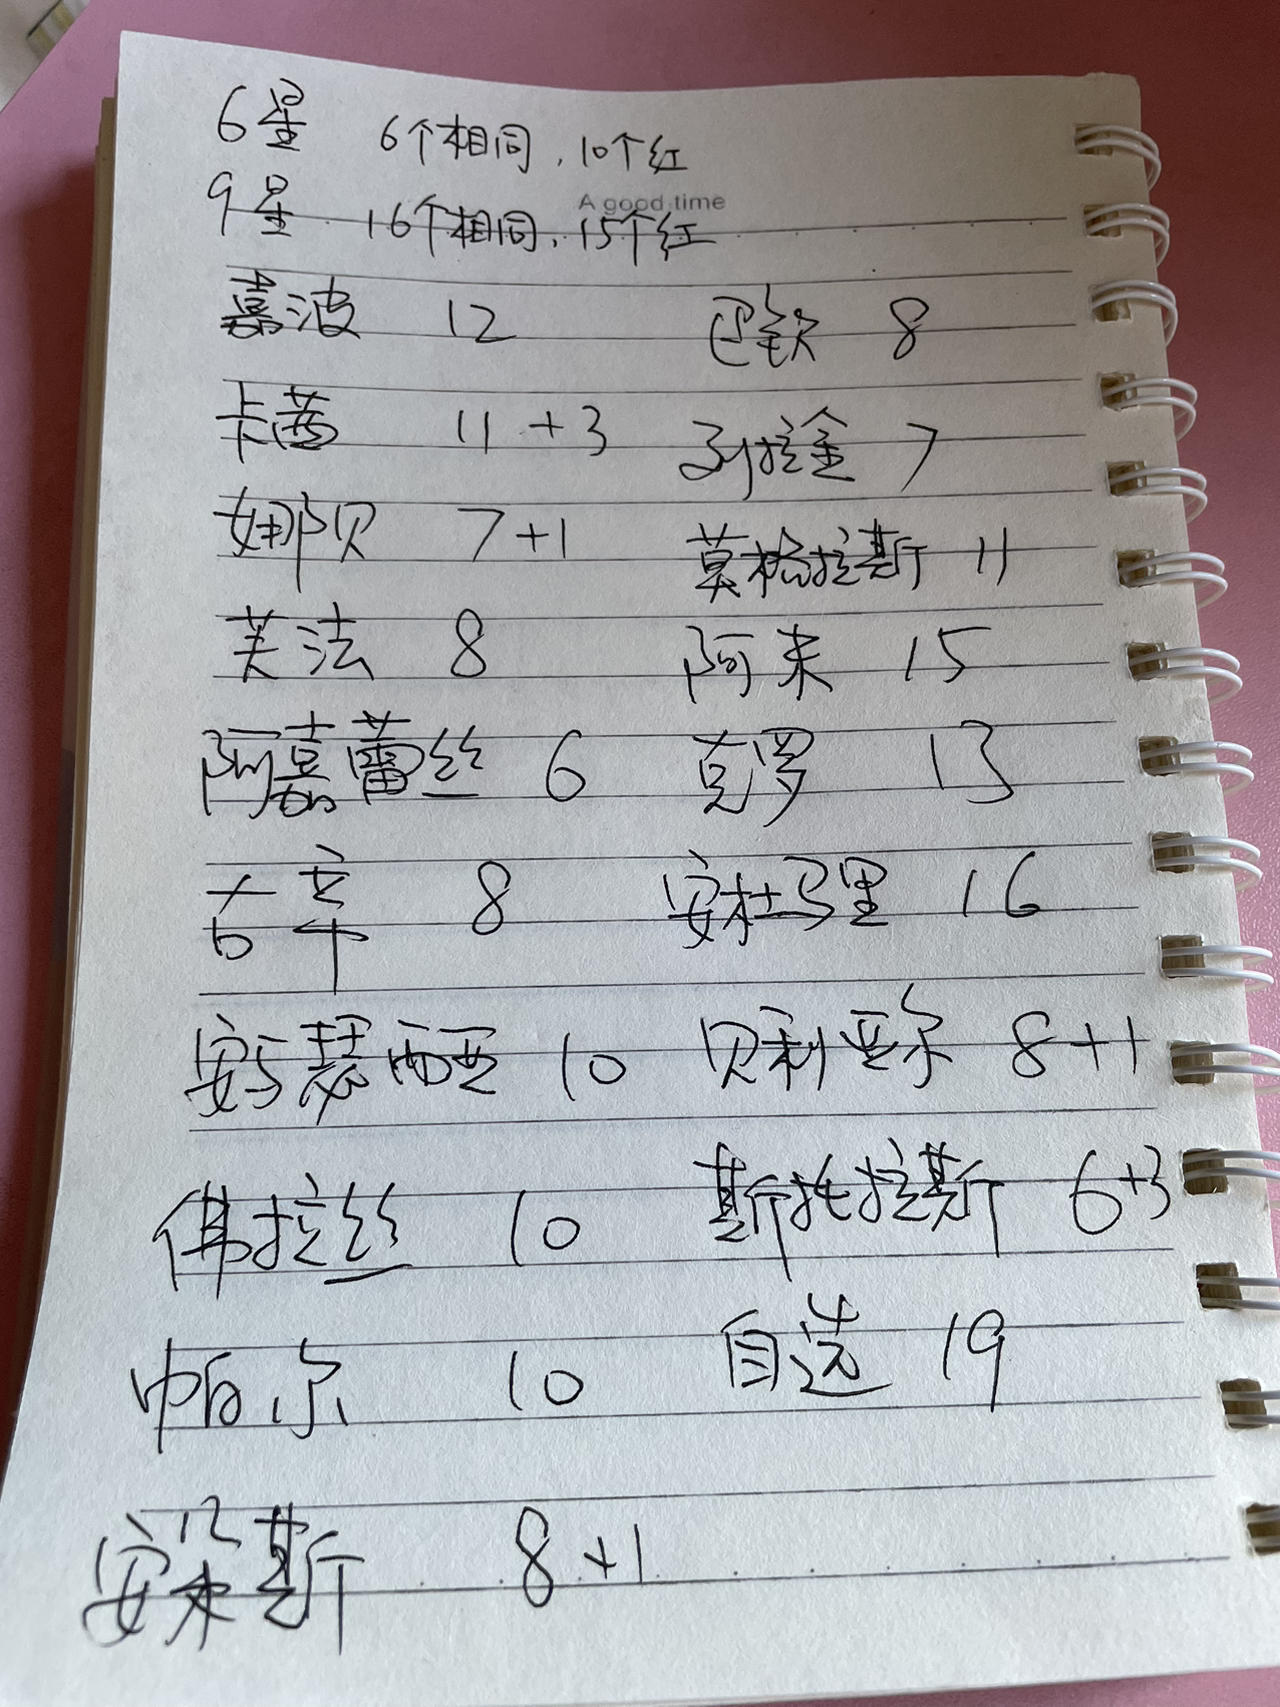 6星 6个相同，10个红
A good time
9星 16个相同，15个红
嘉波 12 巴钦 8
卡茜 11+3 列拉金 7
娜贝 7+1 莫格拉斯 11
芙法 8 阿来 15
阿嘉蕾丝 6 克罗 13
古辛 8 安杜马里 16
安瑟西亚 10 贝利亚尔 8+1
佛拉丝 10 斯托拉斯 6+3
帕尔 10 自选 19
安洣斯 8+1